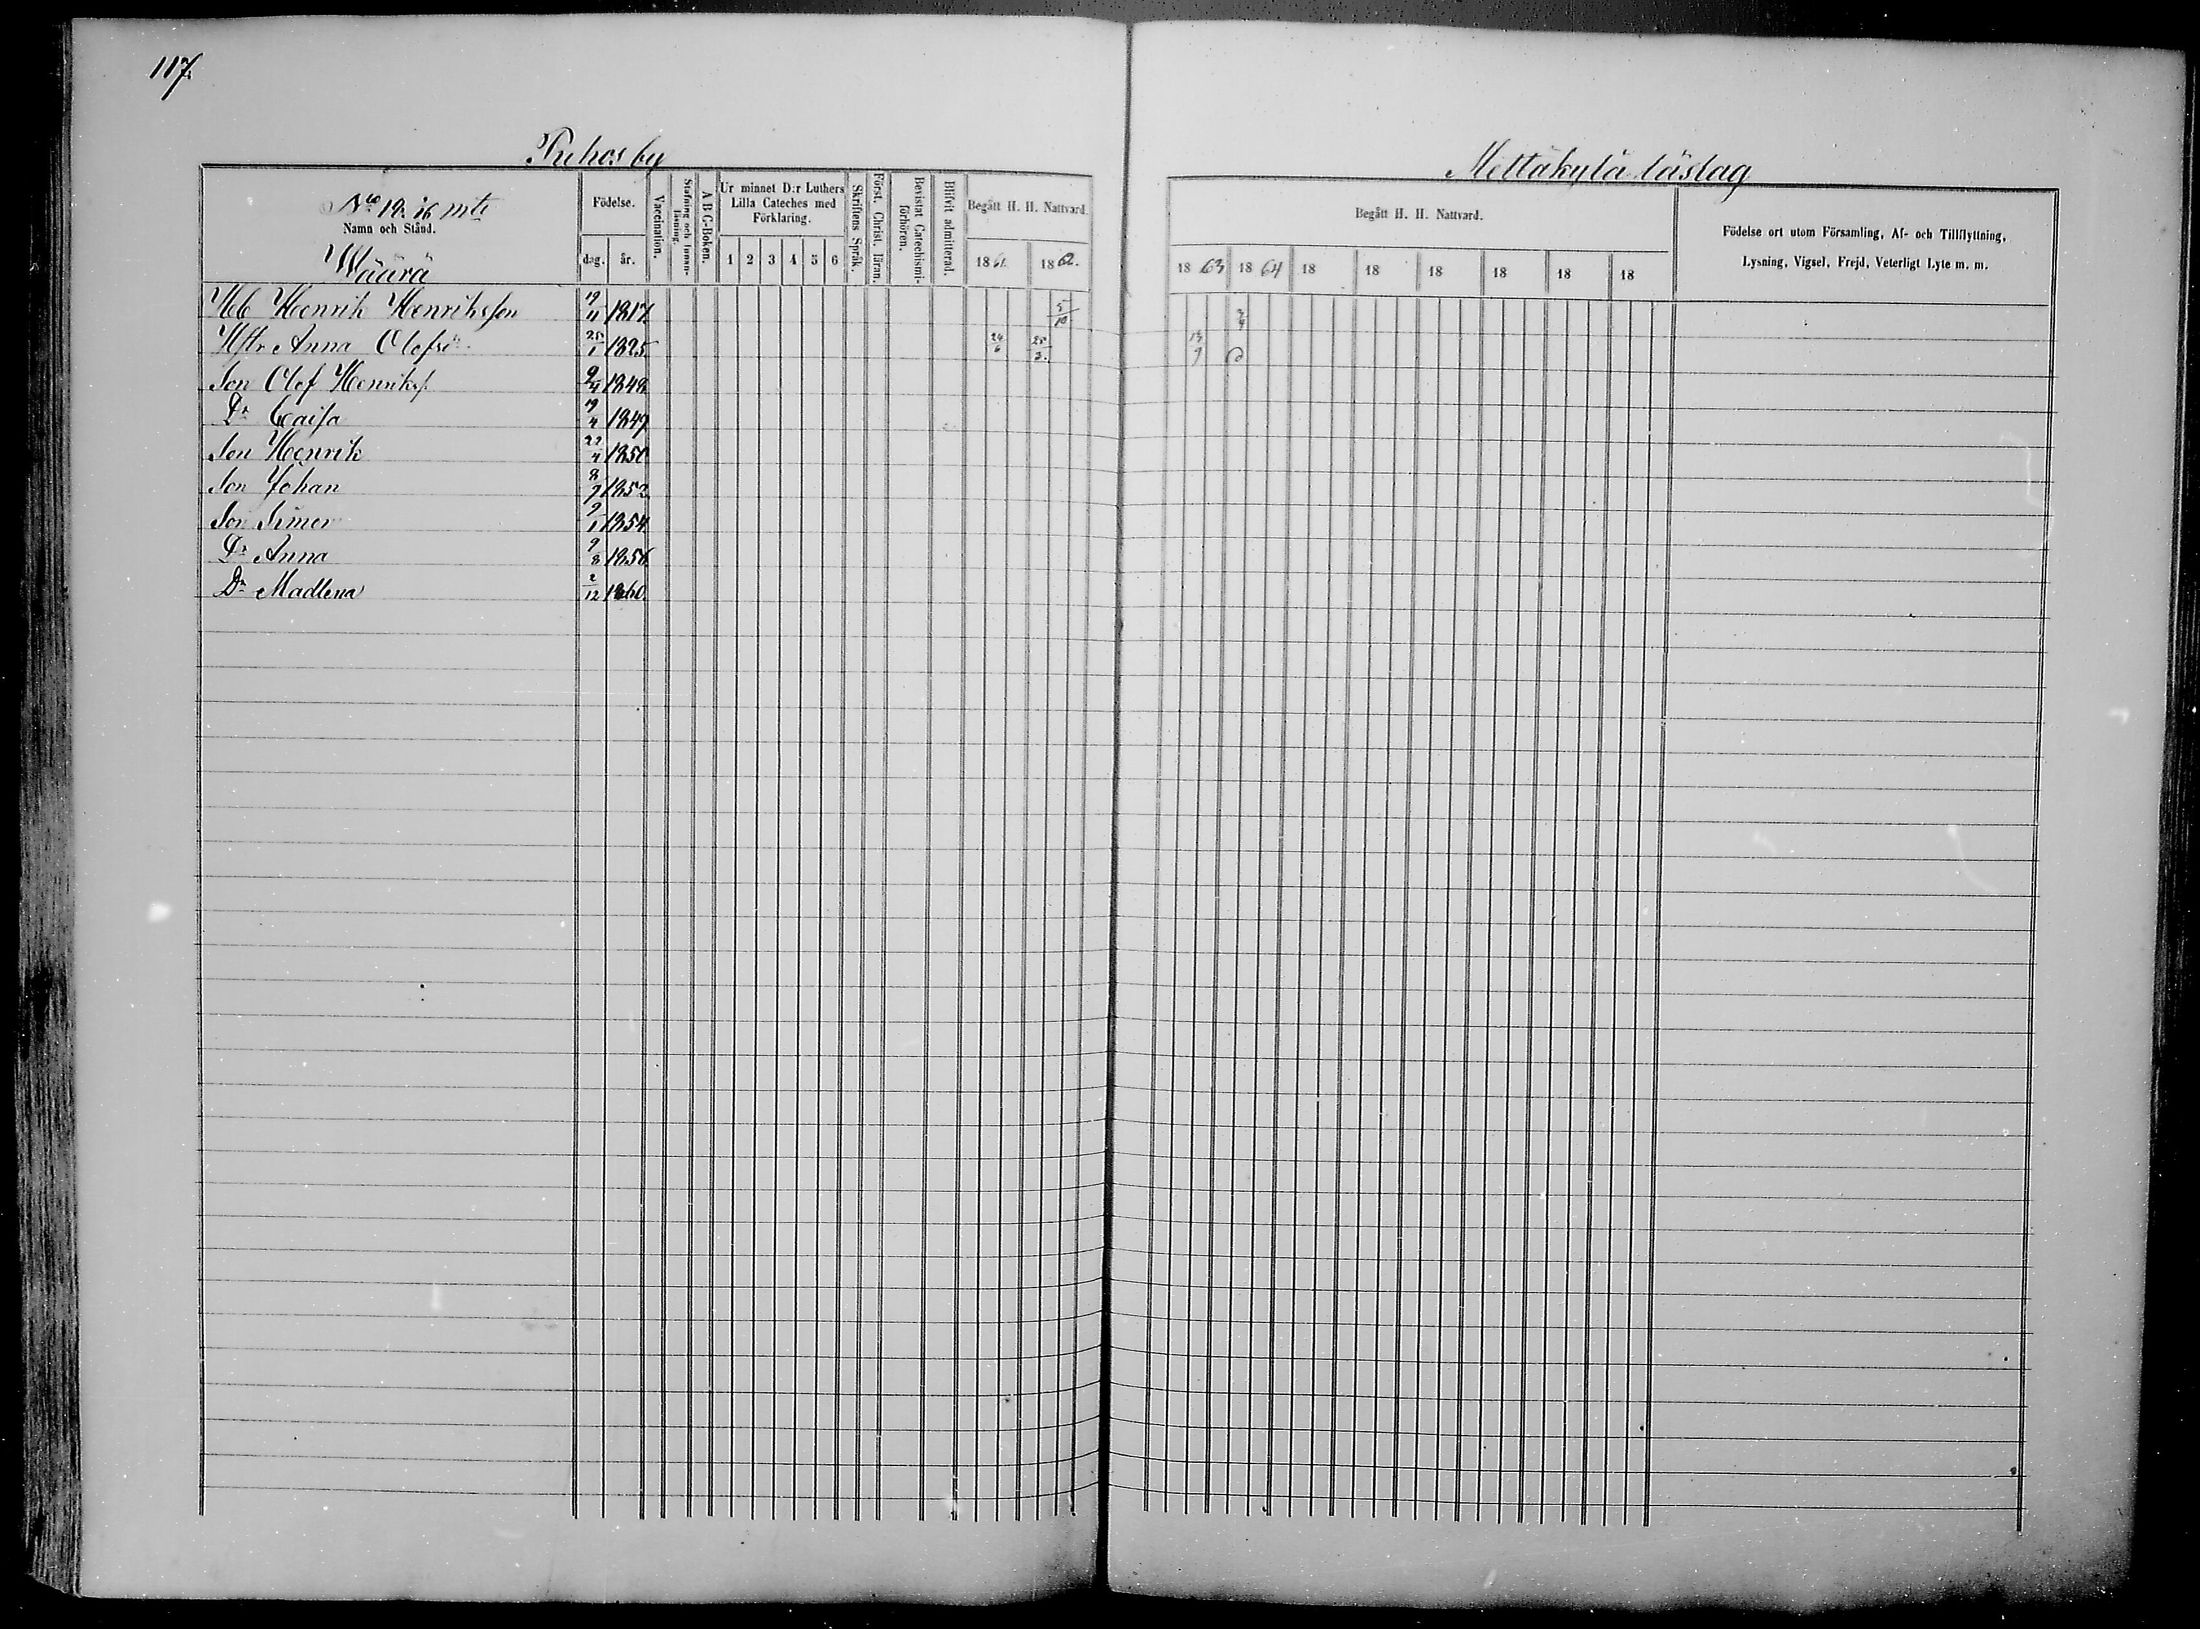 117.
Puhos by
Mettäkylä läslag
Nro 19. 16 mtl
Namn och Stånd.
Wäärä
Födelse.
dag. år.
Vaccination.
Stafning och Innan-läsning.
A B C-Boken.
Ur minnet D:r Luthers
Lilla Cateches med
Förklaring.
1 2 3 4 5 6
Skriftens Språk.
Först. Christ. läran.
Bevistat Catechismi-förhören.
Blifvit admitterad.
Begått H. H. Nattvard.
1861. 1862.
Begått H. H. Nattvard.
18 63 18 64 18 18 18 18 18 18
Födelse ort utom Församling, Af- och Tillflyttning,
Lysning, Vigsel, Frejd, Veterligt Lyte m. m.
Henrik Henriksson 19/11 1817. 5/10
Hstr Anna Olofsdr 25/1 1825 24/6 25/3
Son Olof Henrikss. 1848
Dr Caisa 19/4 1849
Son Henrik 22/4 1850
Son Johan 8/9 1852
Son Simon 9/1 1854
Dr Anna 9/8 1856
Dr Madlena 2/12 1860